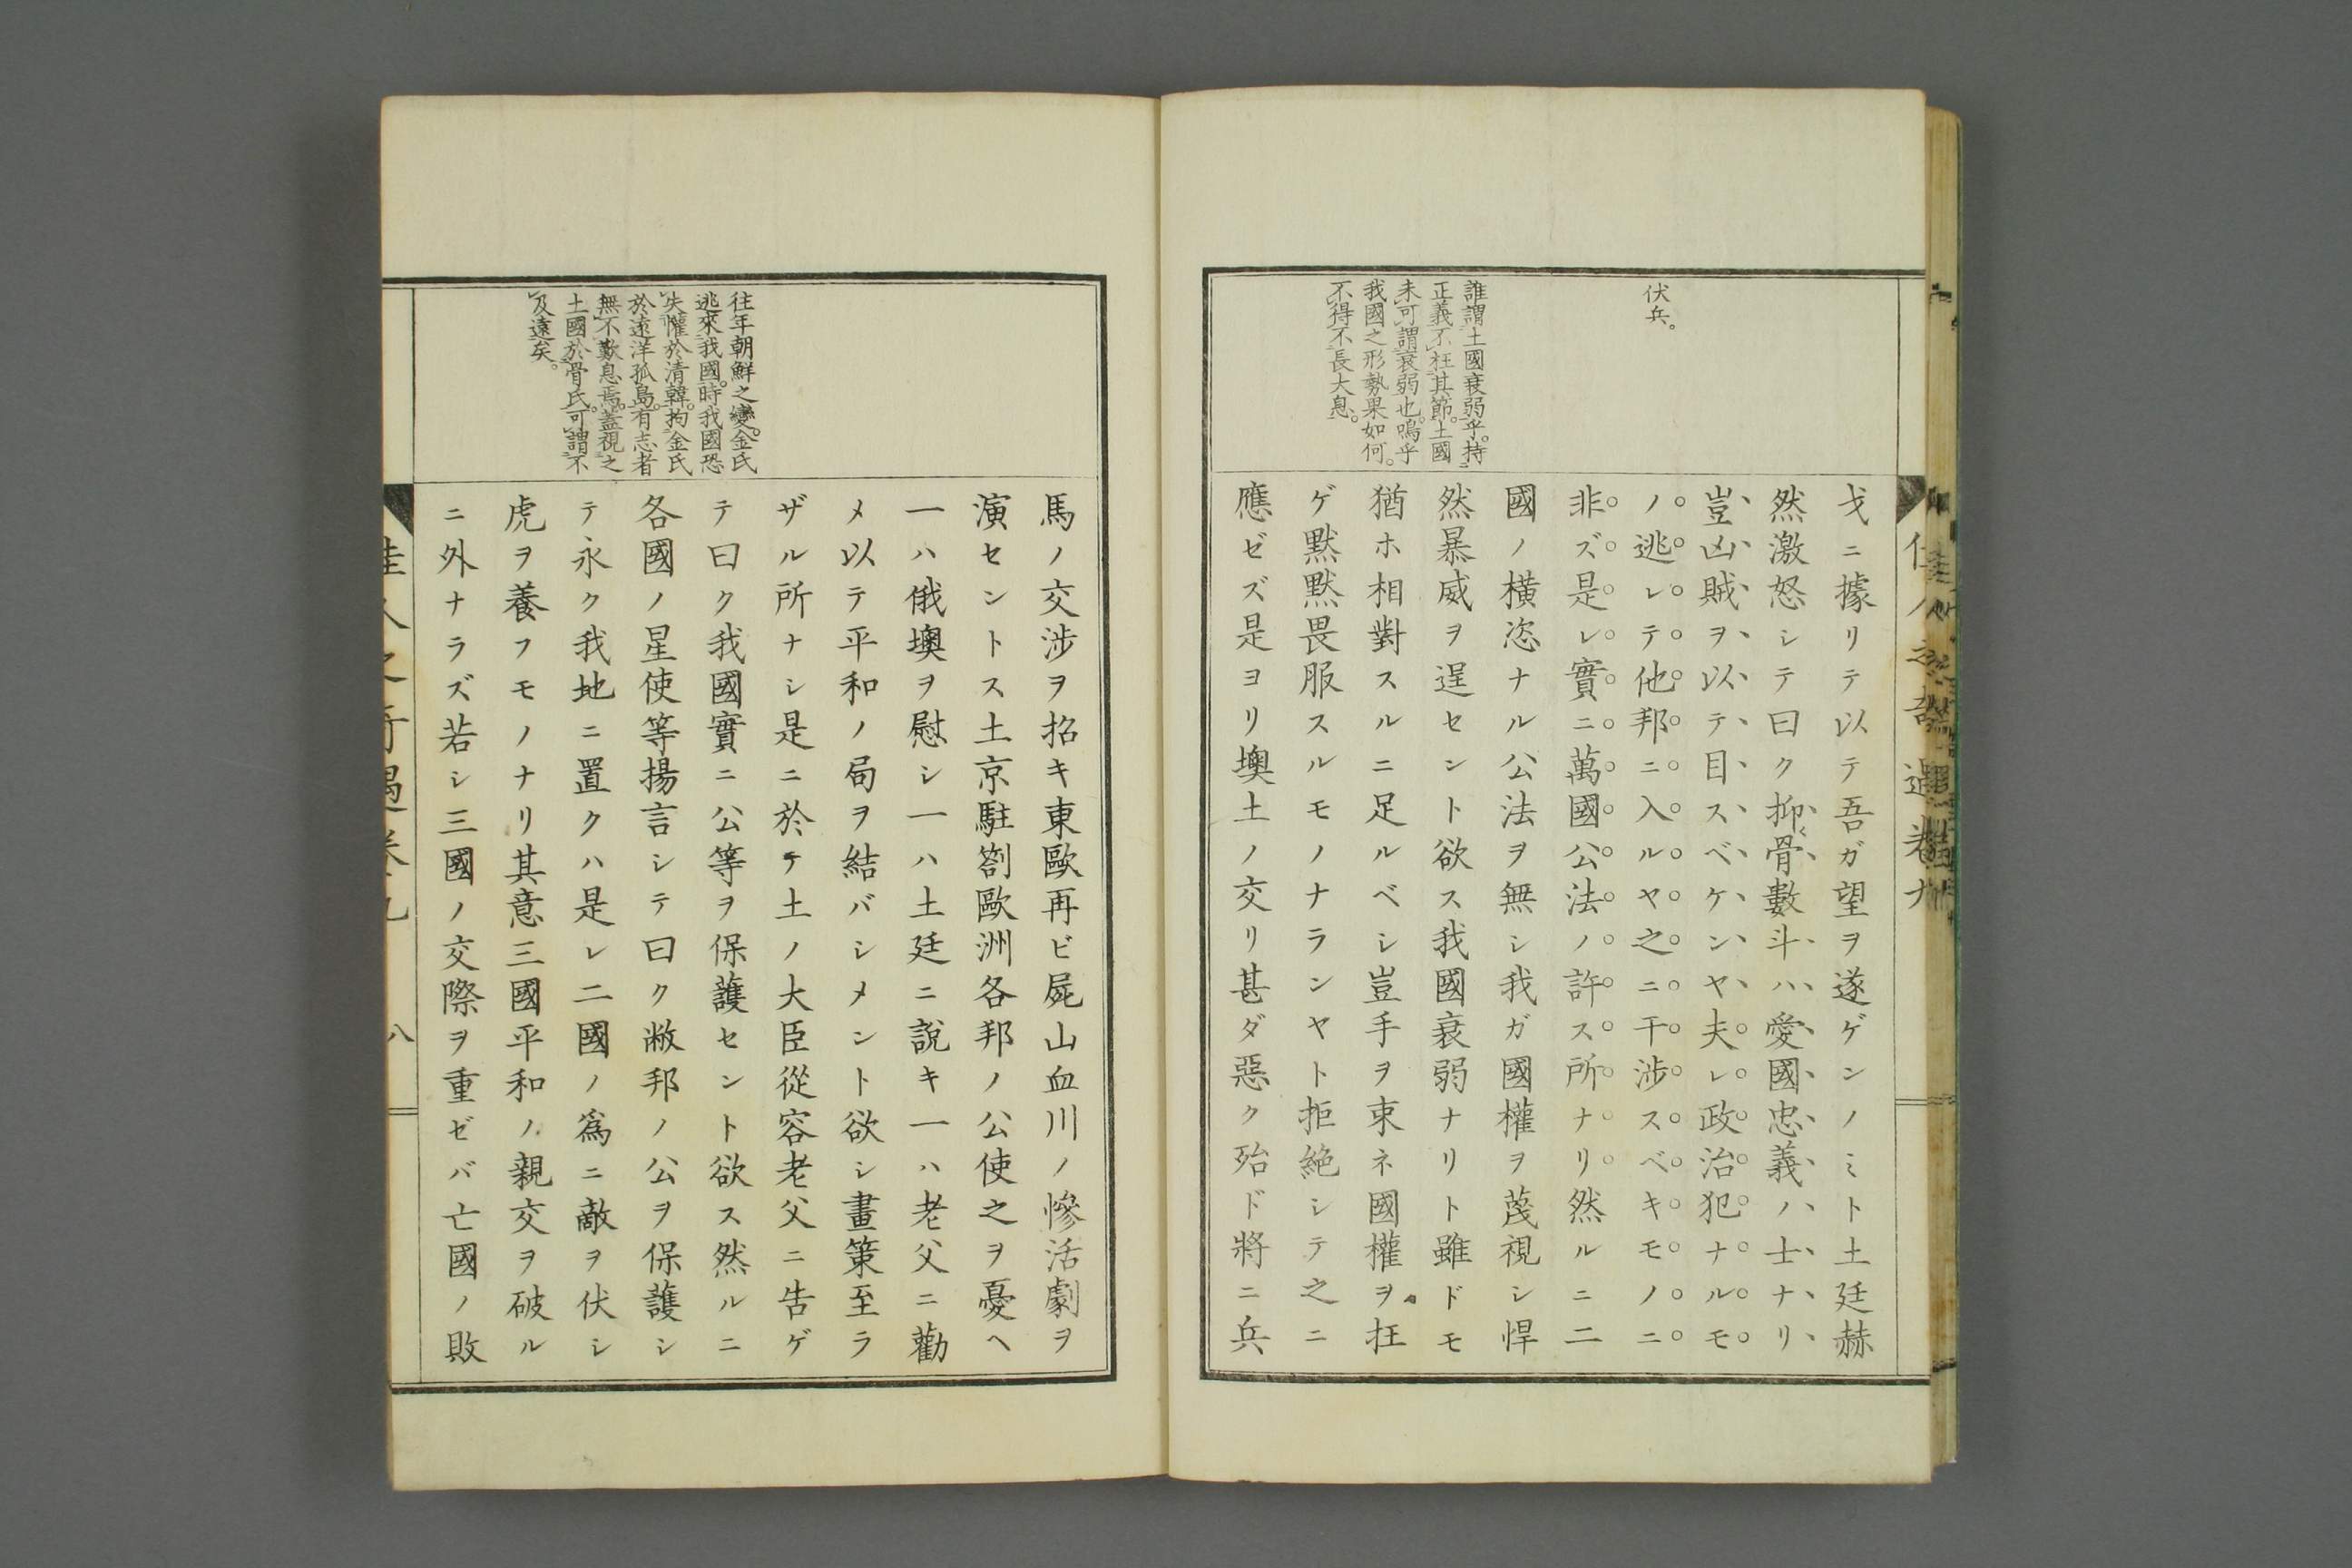 伏兵。
誰謂土國衰弱乎。持
正義不枉其節。土國
未可謂衰弱也。嗚乎
我國之形勢果如何。
不得不長大息。
戈ニ據リテ以テ吾ガ望ヲ遂ゲンノミト土廷赫
然激怒シテ曰ク抑〻骨數斗ハ愛國忠義ノ士ナリ
豈凶賊ヲ以テ目スベケンヤ夫レ政治犯ナルモ
ノ逃レテ他邦ニ入ルヤ之ニ干涉スベキモノニ
非ズ是レ實ニ萬國公法ノ許ス所ナリ然ルニ二
國ノ橫恣ナル公法ヲ無シ我ガ國權ヲ蔑視シ悍
然暴威ヲ逞セント欲ス我國衰弱ナリト雖ドモ
猶ホ相對スルニ足ルベシ豈手ヲ束ネ國權ヲ枉
ゲ黙黙畏服スルモノナランヤト拒絕シテ之ニ
應ゼズ是ヨリ墺土ノ交リ甚ダ惡ク殆ド將ニ兵
往年朝鮮之變。金氏
逃來我國。時我國恐
失懽於清韓。拘金氏
於遠洋孤島。有志者
無不歎息焉。蓋視之
土國於骨氏。可謂不
及遠矣。
馬ノ交涉ヲ招キ東歐再ビ屍山血川ノ慘活劇ヲ
演セントス土京駐劄歐洲各邦ノ公使之ヲ憂ヘ
一ハ俄墺ヲ慰シ一ハ土廷ニ說キ一ハ老父ニ勸
メ以テ平和ノ局ヲ結バシメント欲シ畫策至ラ
ザル所ナシ是ニ於テ土ノ大臣從容老父ニ告ゲ
テ曰ク我國實ニ公等ヲ保護セント欲ス然ルニ
各國ノ星使等揚言シテ曰ク敝邦ノ公ヲ保護シ
テ永ク我地ニ置クハ是レ二國ノ爲ニ敵ヲ伏シ
虎ヲ養フモノナリ其意三國平和ノ親交ヲ破ル
ニ外ナラズ若シ三國ノ交際ヲ重ゼバ亡國ノ敗
佳人之奇遇卷九
八